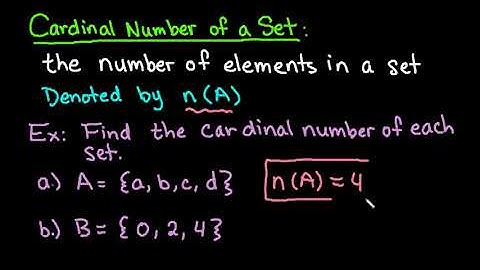 Cardinal Number of a Set:
the number of elements in a set
Denoted by n(A)
Ex: Find the cardinal number of each
set.
a.) A = {a, b, c, d} n(A) = 4
b.) B = { 0, 2, 4}